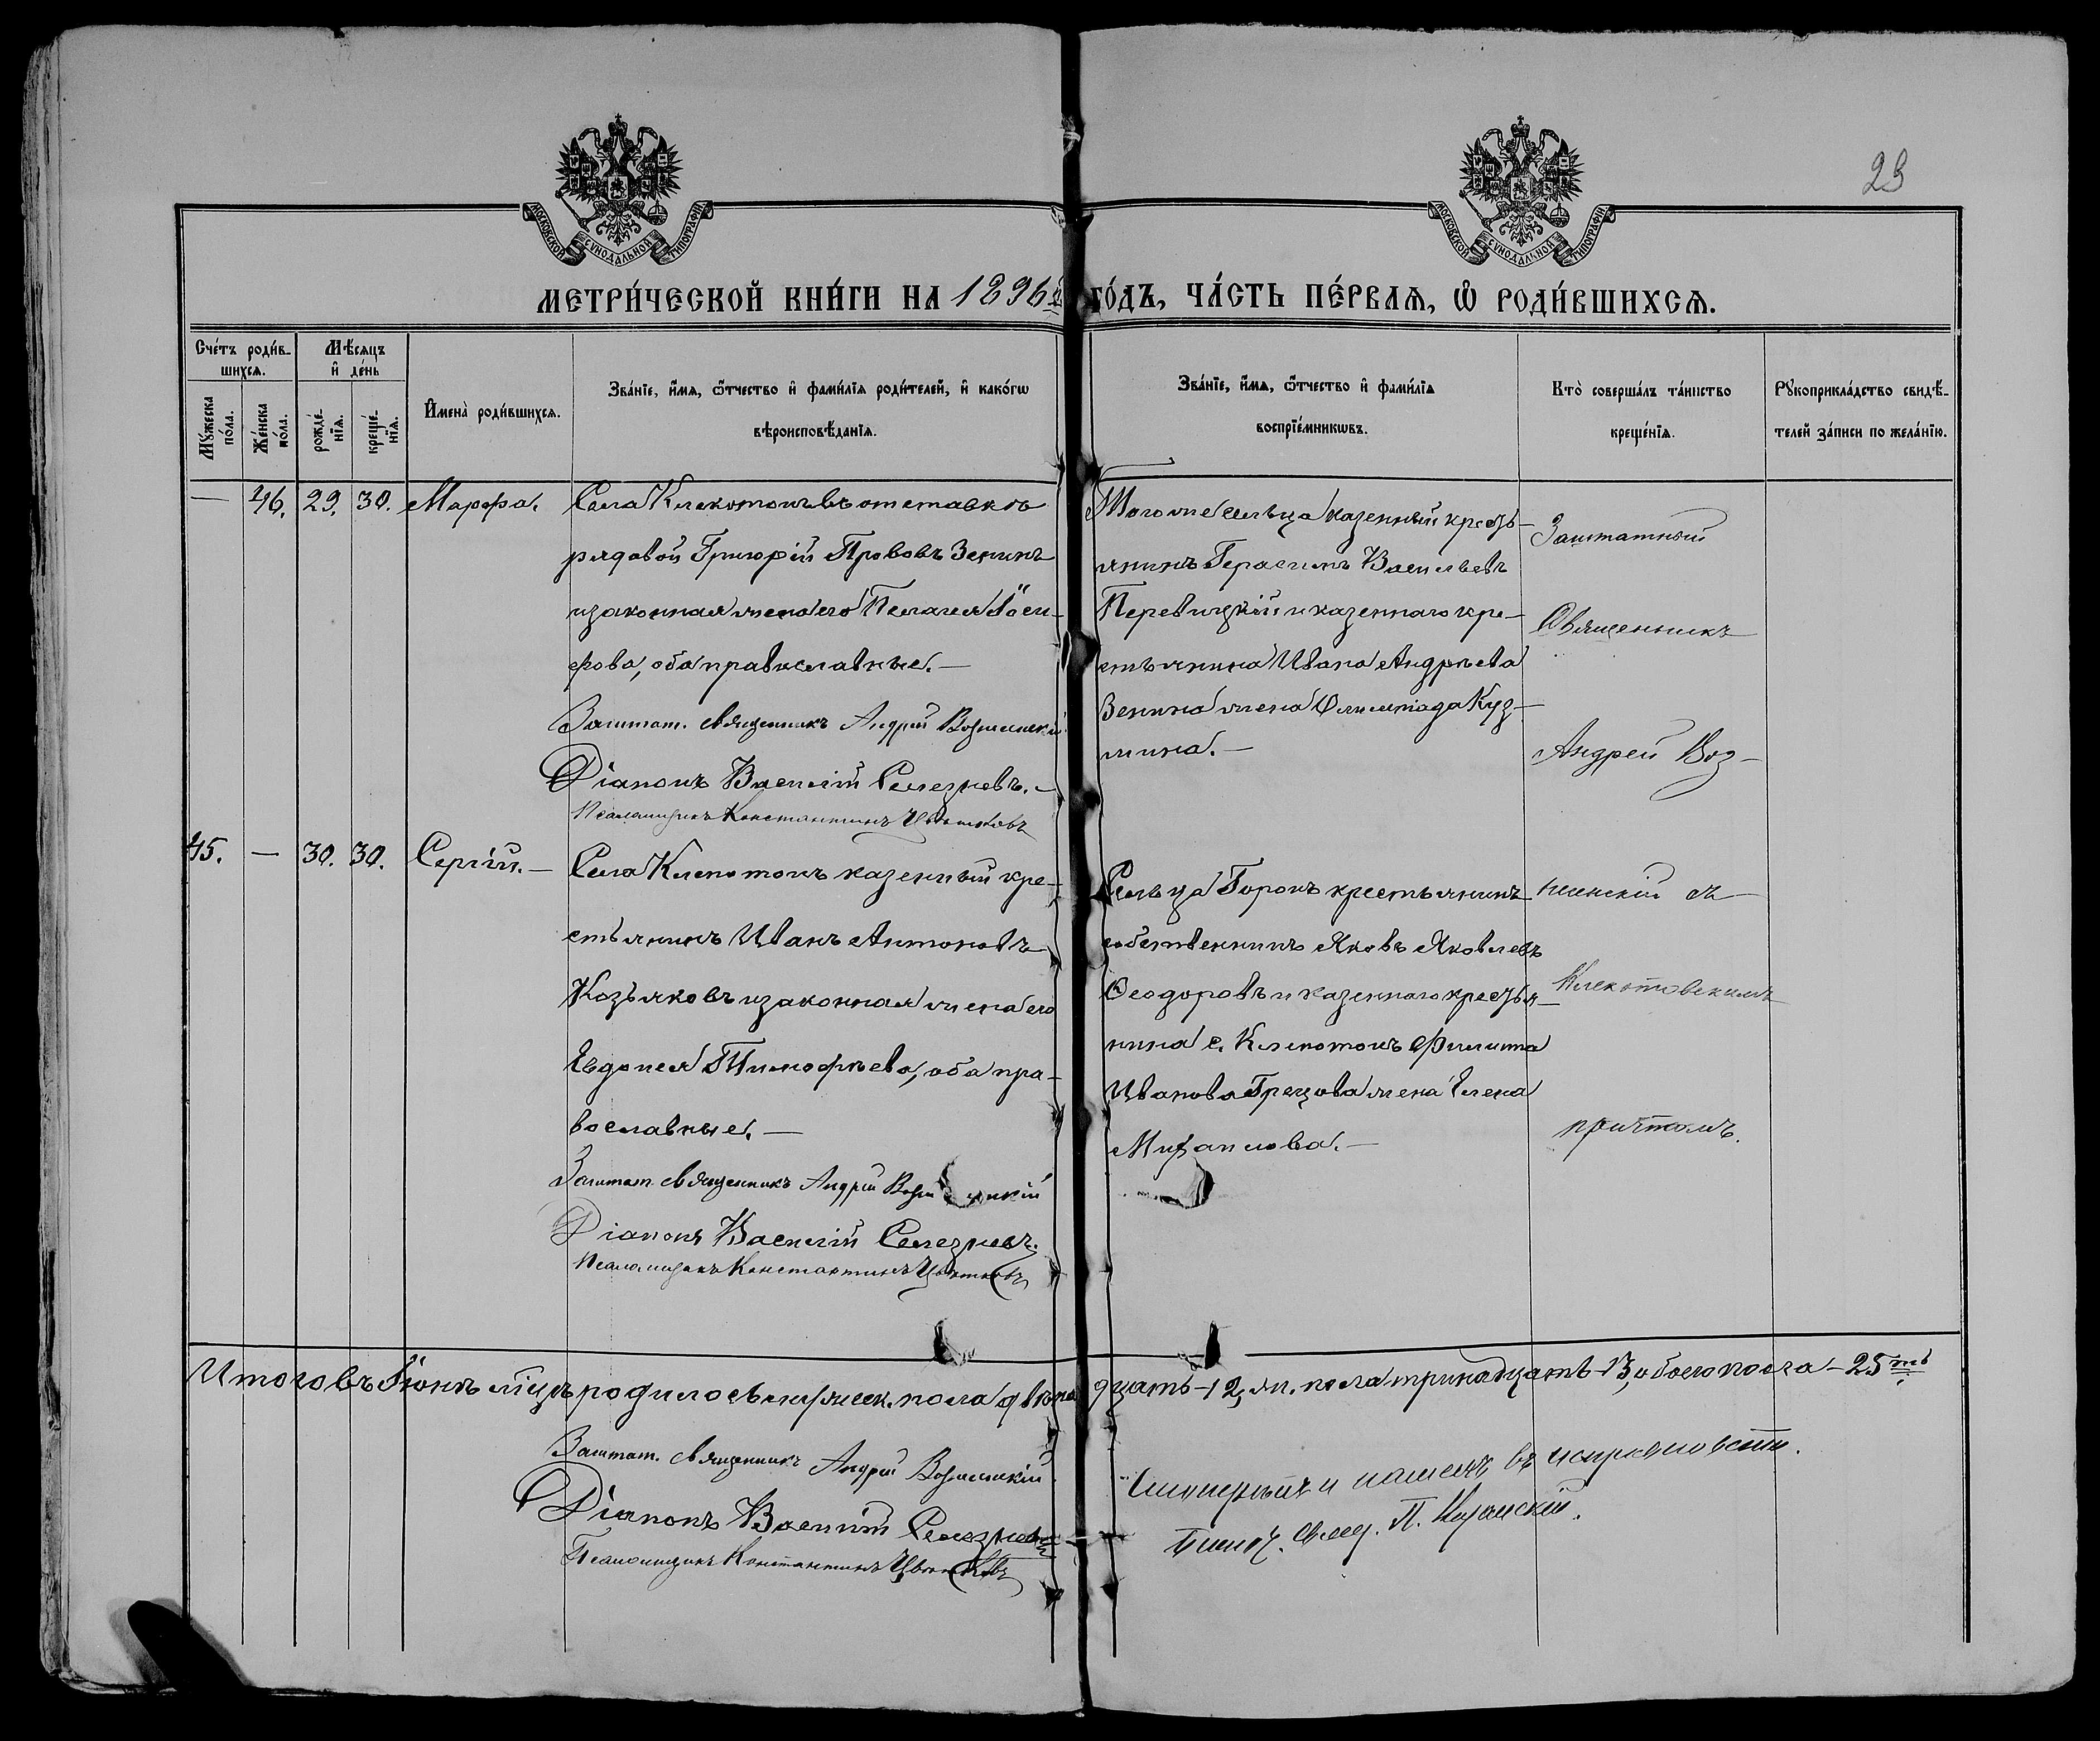 23
МОСКОВСКОЙ СѴНОДАЛЬНОЙ ТИПОГРАФІИ
МОСКОВСКОЙ СѴНОДАЛЬНОЙ ТИПОГРАФІИ
МЕТРИ́ЧЕСКОЙ КНИ́ГИ НА 1896й ГО́ДЪ, ЧА́СТЬ ПЕ́РВАѦ, Ѽ РОДИ́ВШИХСѦ.
Счетъ роди́в-
шихсѧ.
Мѣ́сяцъ
и҆ де́нь
Мꙋжеска
по́ла.
Же́нска
по́ла.
рожде́-
нїѧ.
креще́-
нїѧ.
И҆мена̀ роди́вшихсѧ.
Зва́нїе, и҆́мѧ, ѻ҆́тчество и҆ фами́лїѧ роди́телей, и҆ како́гѡ
вѣроисповѣ́данїѧ.
Зва́нїе, и҆́мѧ, ѻ҆́тчество и҆ фами́лїѧ
воспрїе́мникѡвъ.
Кто̀ соверша́лъ та́инство
креще́нїѧ.
Рꙋкоприкла́дство свидѣ́-
телей за́писи по жела́нїю.
— 46. 29. 30. Марѳа.
Села Клекотокъ въ отставкѣ
рядовой Григорій Прововъ Зенинъ
и законная жена его Пелагея
фова, оба православные. —
Заштат. священникъ Андрей Вознесенскій
Діаконъ Василій Селезневъ. —
Псаломщикъ Константинъ Цвѣтковъ
Того же сельца казенный кресть-
янинъ Герасимъ Васильевъ
Перевицкій и казеннаго кре-
стьянина Ивана Андреева
Зенина жена Олимпіада Куз-
мина. —
Заштатный
Священникъ
Андрей Воз-
несенскій съ
Клекотовскимъ
причтомъ.
45. — 30. 30. Сергій. —
Села Клекотокъ казенный кре-
стьянинъ Иванъ Антоновъ
Козьяковъ и законная жена его
Евдокея Тимофѣева, оба пра-
вославные. —
Заштат. священникъ Андрей Вознесенскій
Діаконъ Василій Селезневъ.
Псаломщикъ Константинъ Цвѣтковъ
Сельца Горокъ крестьянинъ
собственникъ Яковъ Яковлевъ
Ѳеодоровъ и казеннаго крестья-
нина с. Клекотокъ Филиппа
Иванова Грецова жена Елена
Михаилова. —
Итого въ Іюнѣ мѣсяцѣ родилось мужеск. пола двѣнадцать — 12, ж. пола тринадцать — 13, обоего пола — 25ть.
Заштат. священникъ Андрей Вознесенскій
Діаконъ Василій Селезневъ
Псаломщикъ Константинъ Цвѣтковъ
и въ исправности.
Свящ. П.